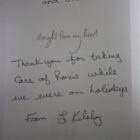 straight from my heart
Thank you for taking
care of Rosie while
we were on holidays
From L Kilsby